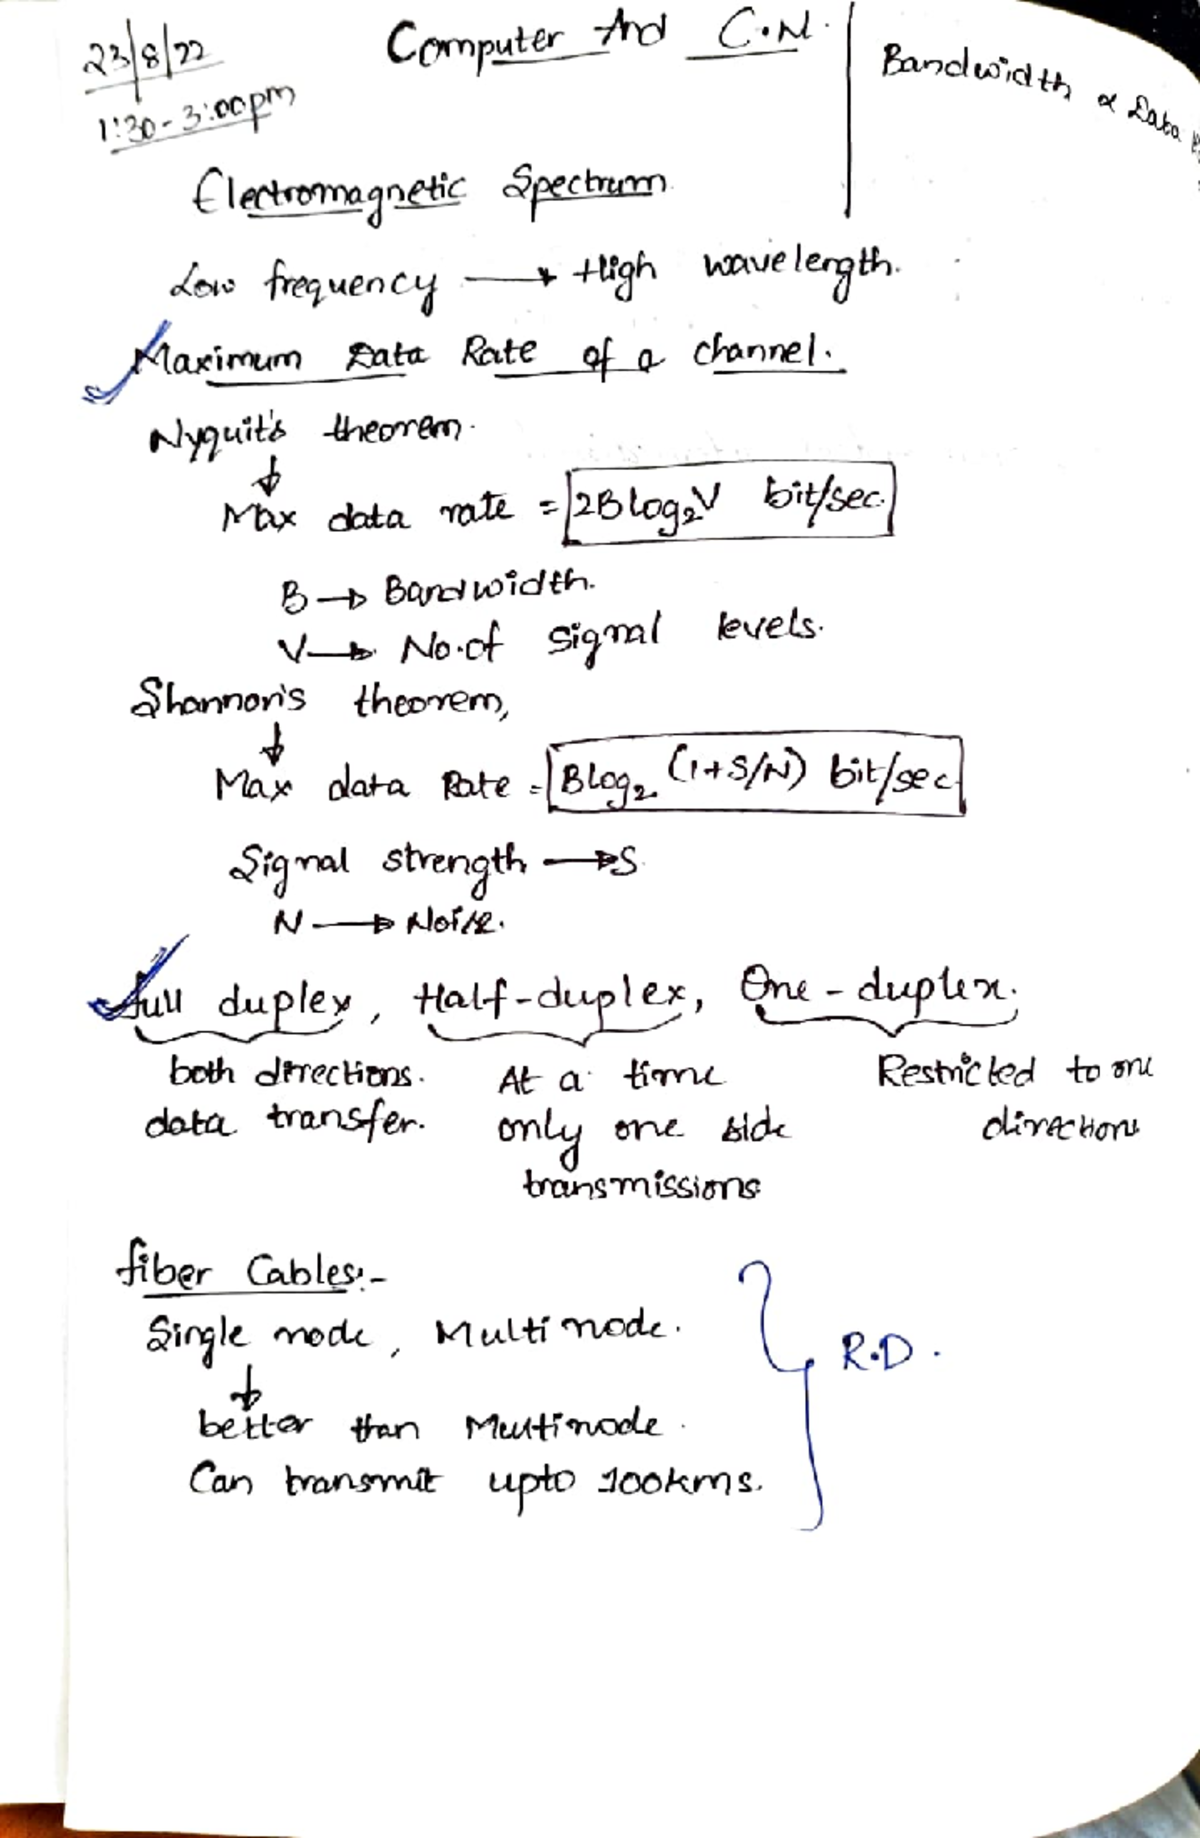 23/8/22
1:30-3:00pm
Computer And C.N.
Bandwidth ∝ Data
Electromagnetic Spectrum
Low frequency → High wavelength.
Maximum Data Rate of a channel.
Nyquit's theorem.
↓
Max data rate = 2Blog₂V bit/sec.
B → Bandwidth.
V → No.of Signal levels.
Shannon's theorem,
↓
Max data Rate = Blog₂ (1+S/N) bit/sec
Signal strength → S.
N → Noise.
full duplex, Half-duplex, One-duplex.
both directions. At a time Restricted to one
data transfer. only one side directions
transmissions
fiber Cables:-
Single node, Multi node.
R.D.
↓
better than Multinode.
Can transmit upto 100kms.